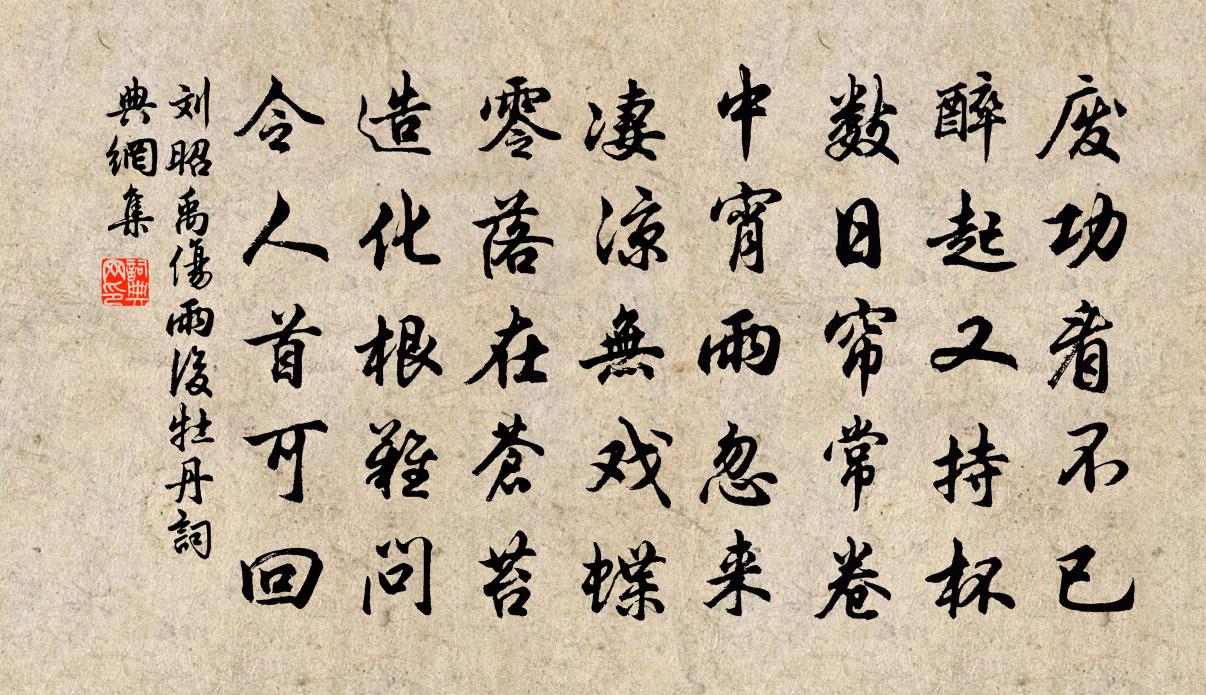 废功看不已
醉起又持杯
数日帘常卷
中宵雨忽来
凄凉無戏蝶
零落在蒼苔
造化根難問
令人首可回
刘昭禹傷雨後牡丹詞
典網集
詞典
网印